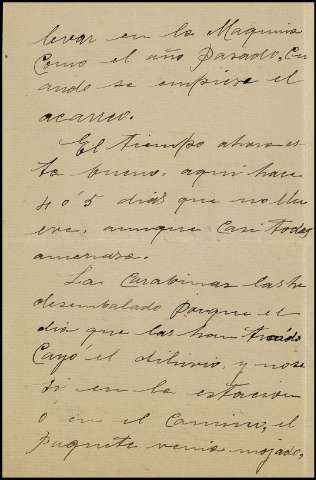 levar en la Maquina
como el año pasado, Cu
ando se empiese el
acarreo.
El tiempo ahora es
ta bueno, aqui hace
4 ó 5 dias que no llu
eve, aunque casi todos
amenasa.
Las carabinas las he
desembalado porque el
dia que las han traído
Cayó el diluvio, y no sé
si en la estacion
o en el camino, el
paquete venia mojado,